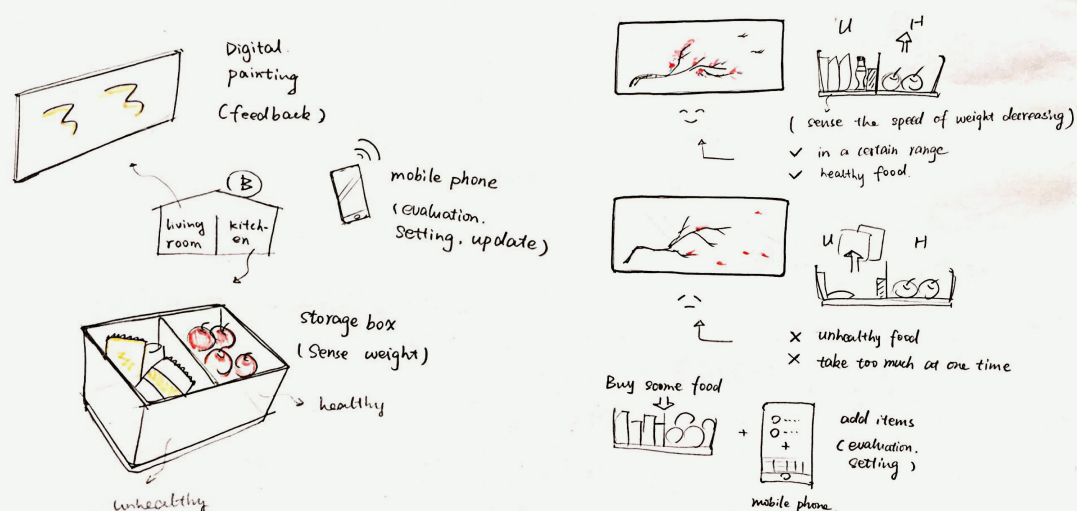 Digital
painting
(feedback)
B
living
room
kitch-
en
mobile phone
(evaluation.
setting. update)
storage box
(Sense weight)
healthy
unhealthy
U
H
(sense the speed of weight decreasing)
✓ in a certain range
✓ healthy food.
U
H
× unhealthy food
× take too much at one time
Buy some food
+
+
add items
(evaluation.
setting)
mobile phone